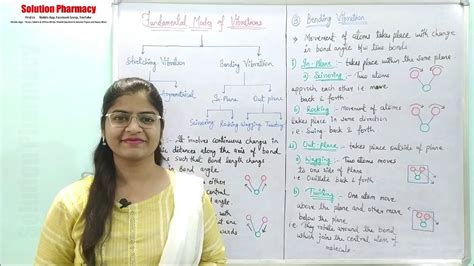 Solution Pharmacy
Fundamental Modes of Vibrations
Stretching Vibration
Bending Vibration
Asymmetrical
In-Plane
Out plane
Scissoring Rocking Wagging Twisting
It involves continuous changes in
distances along the axis of bond
such that bond length change
in Bond angle
either
central
angle
with
(B) Bending Vibration
Movement of atoms takes place with change
in bond angle b/w two bonds
In-Plane :- takes place within the same plane
a) Scissoring :- Two atoms
approach each other i.e move
back & forth
b) Rocking :- Movement of atoms
takes place in same direction
i.e Swing back & forth
Out-Plane :- takes place outside of plane
a) Wagging :- Two atoms moves
to one side of plane
i.e Oscillate back & forth
b) Twisting :- One atom move
above the plane and other move
below the plane
i.e They rotate around the bond
which joins the central atom of
molecule